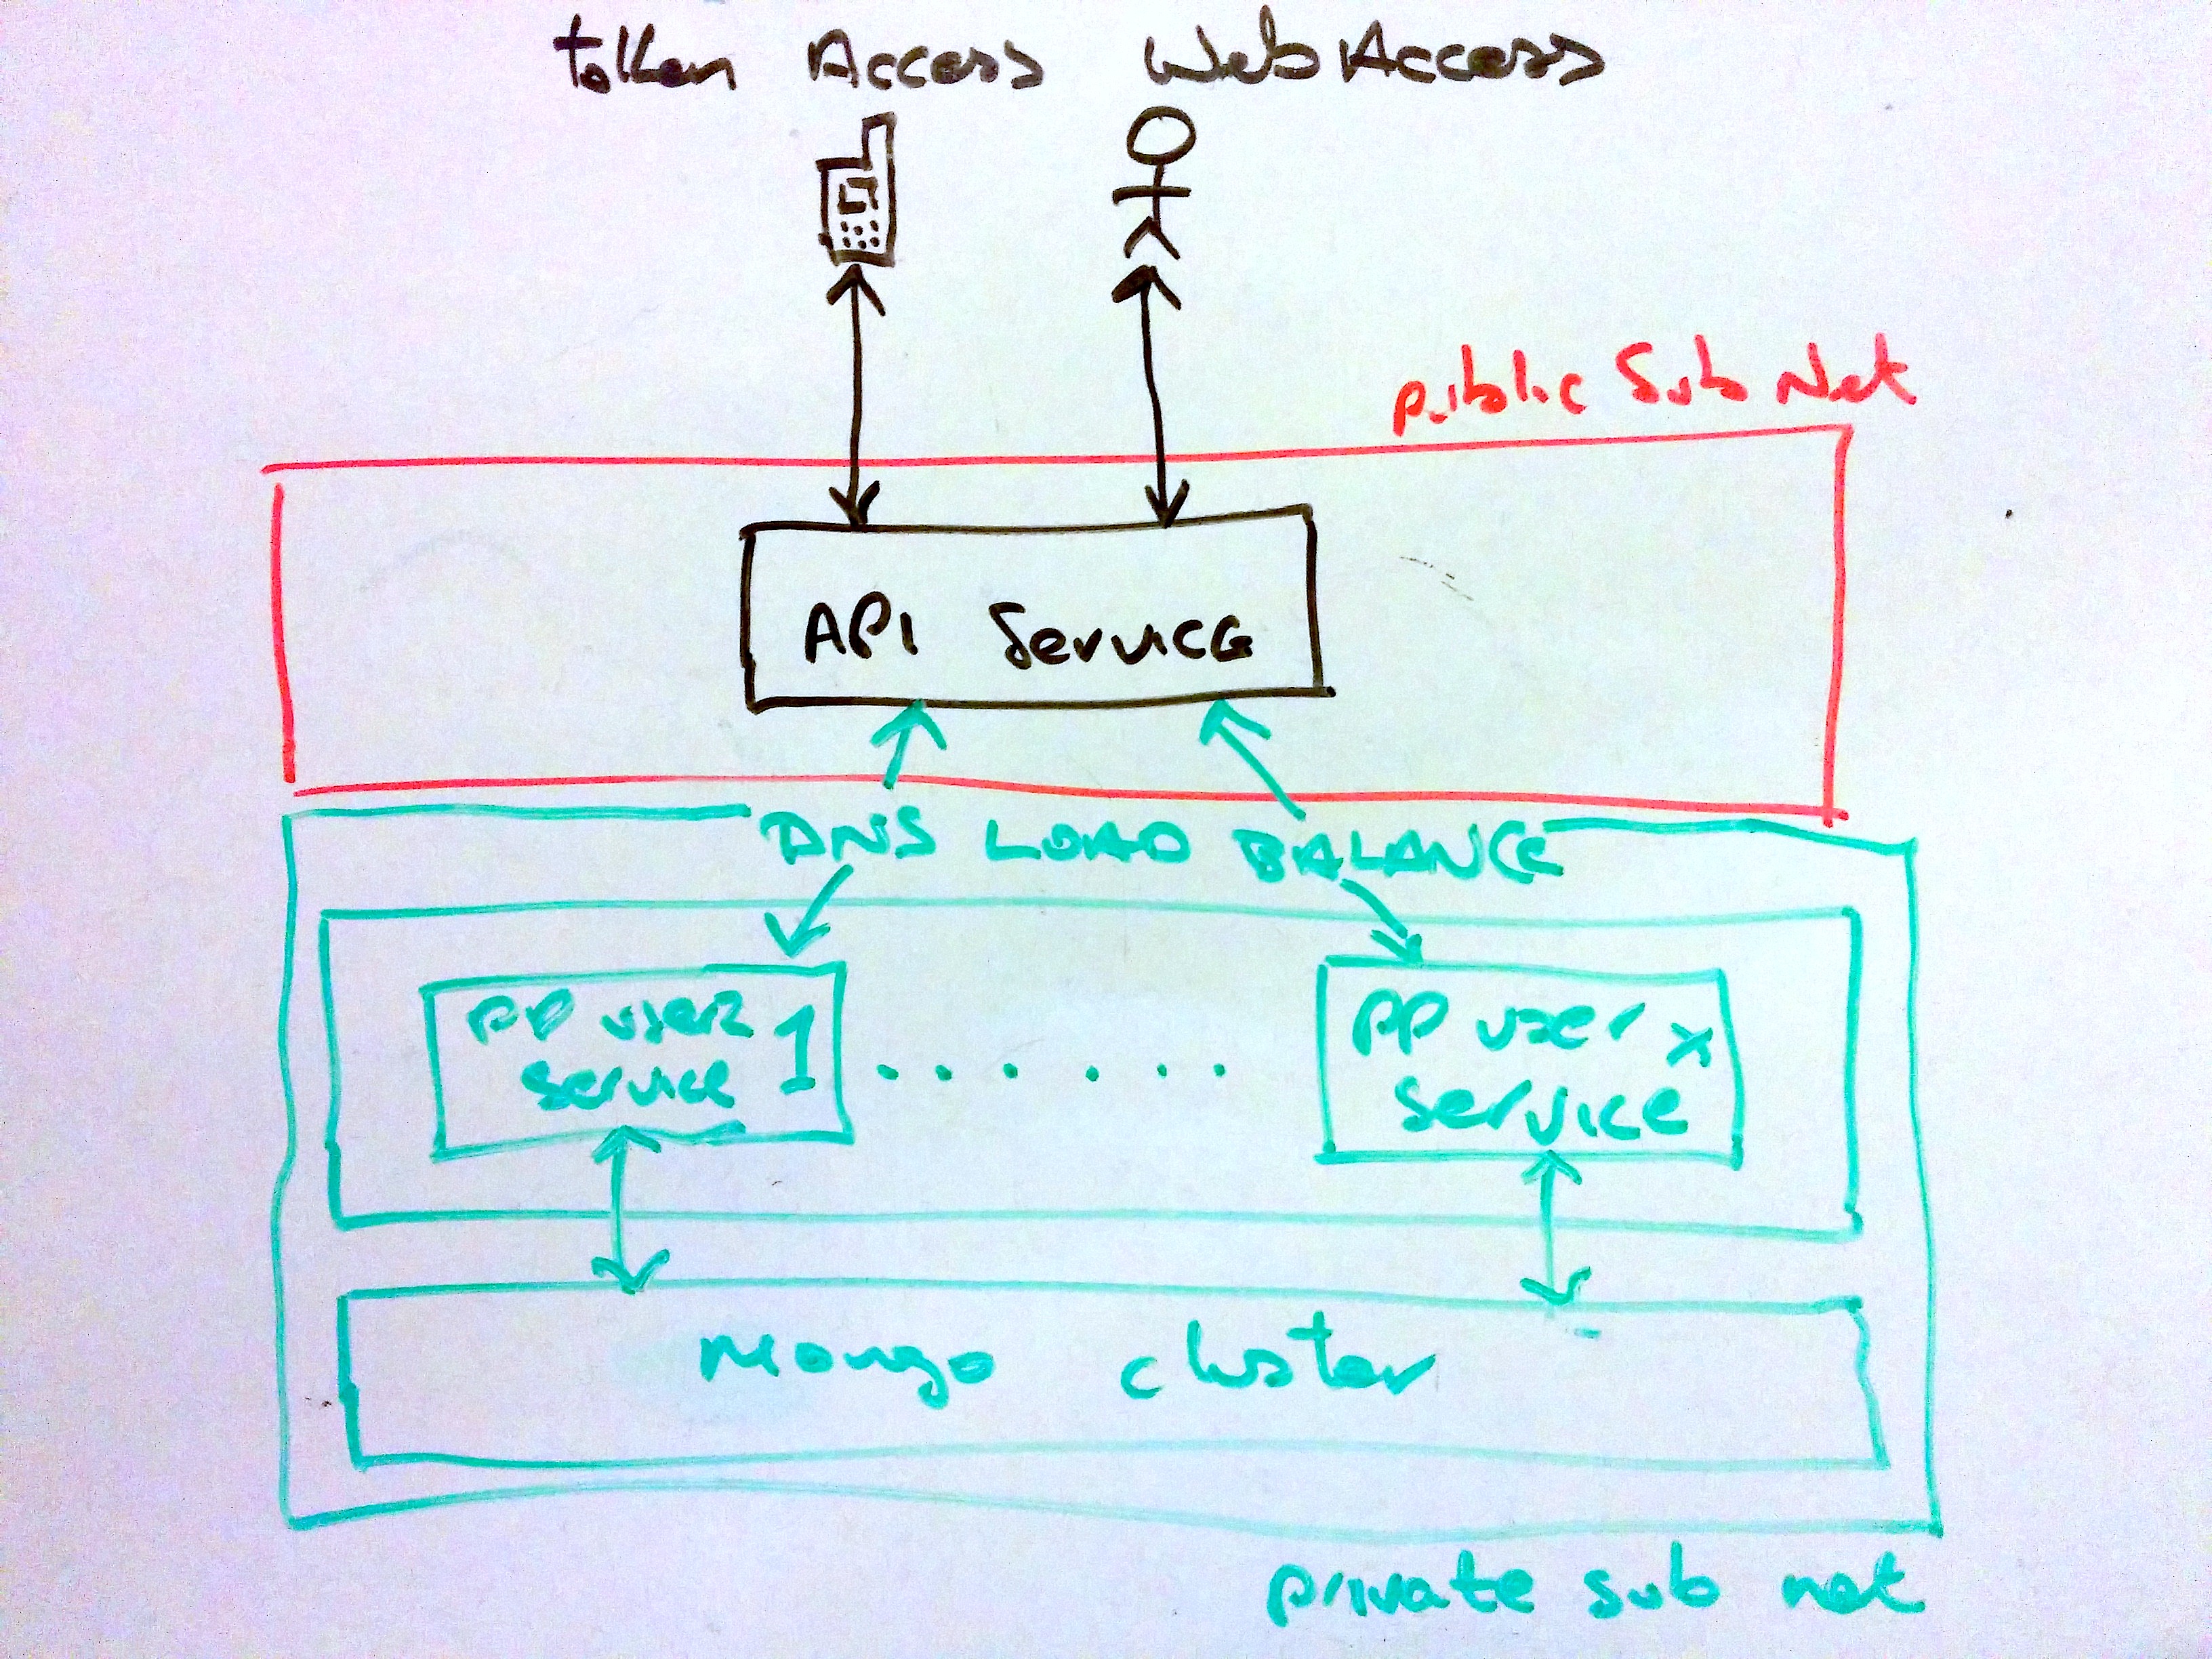 token Access Web Access
public Sub Net
API Service
DNS LOAD BALANCE
PP user 1
service
PP user x
service
mongo cluster
private sub net